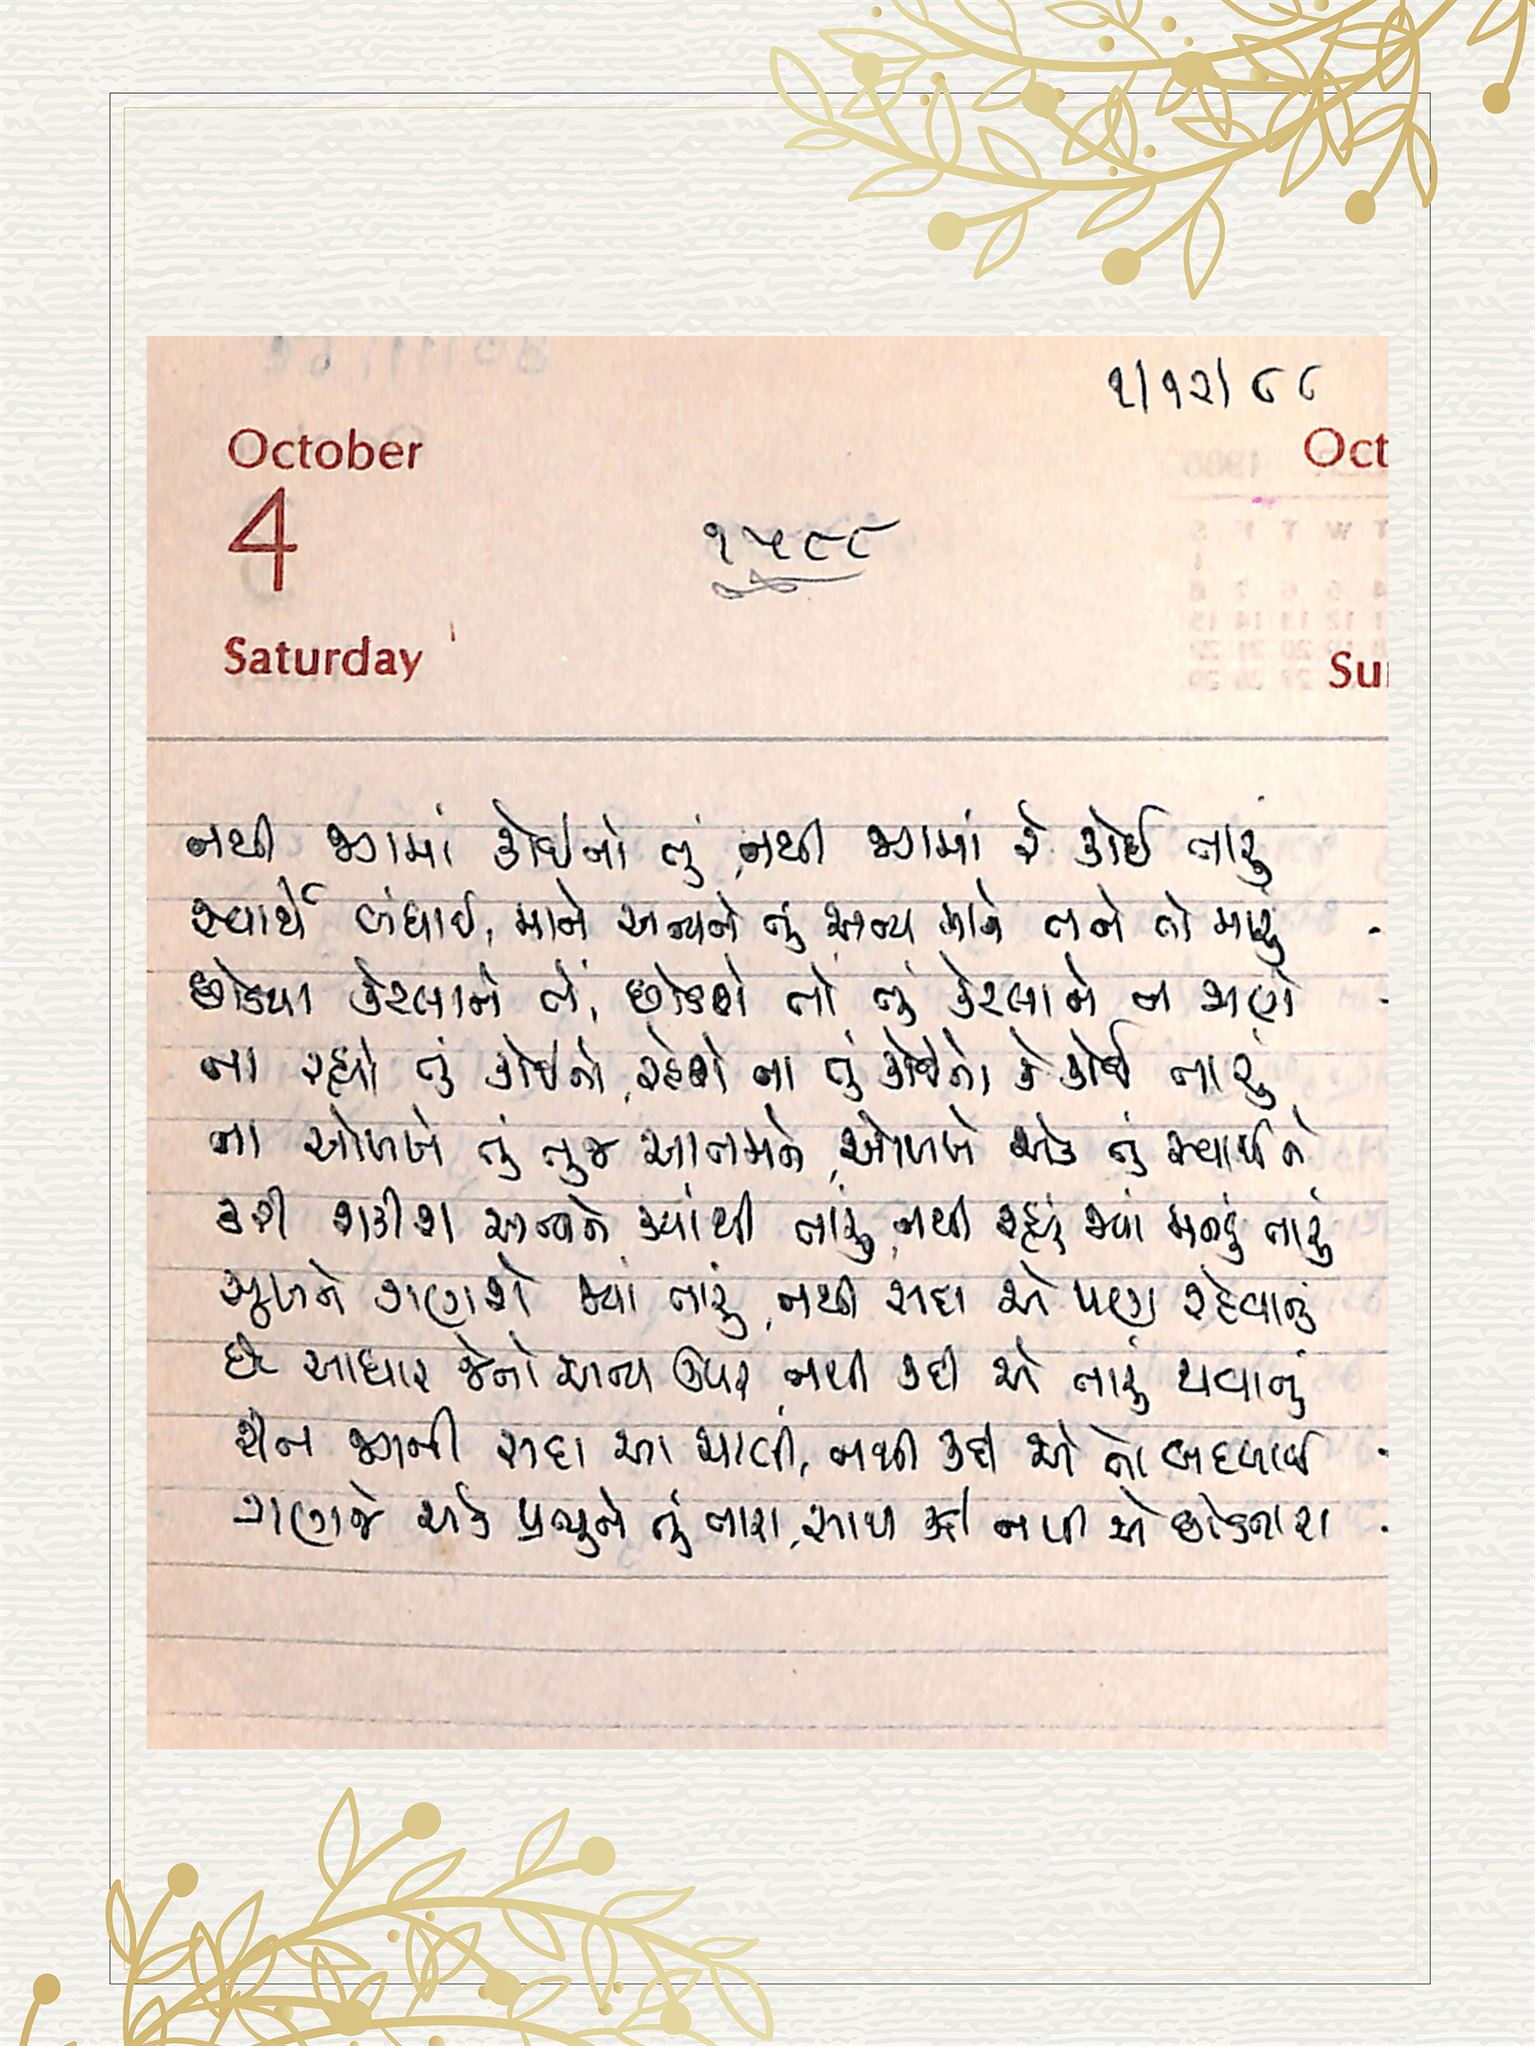 ૧/૧૨/૮૮
October
Oct
4
૧૫૯૯
Saturday
Su
નથી જગમાં કોઈનો તું, નથી જગમાં રે કોઈ તારું
સ્વાર્થે બંધાઈ, માને અન્યને તું અન્ય માને તને તો મારું
છોડયા કેટલાને તેં, છોડશે તો તું કેટલાને ન જાણે
ના રહ્યો તું કોઈનો, રહેશે ના તું કોઈનો કે કોઈ તારું
ના ઓળખે તું તુજ આતમને, ઓળખે એક તું સ્વાર્થને
કરી શકીશ અન્યને ક્યાંથી તારું, નથી રહ્યું જ્યાં મનડું તારું
સુખને ગણશે જ્યાં તારું, નથી સદા એ પણ રહેવાનું
છે આધાર જેનો અન્ય ઉપર, નથી કદી એ તારું થવાનું
રીત જગની સદા આ ચાલી, નથી કદી એ તો બદલાઈ
ગણજે એક પ્રભુને તું તારા, સાથ કદી નથી એ છોડનારા